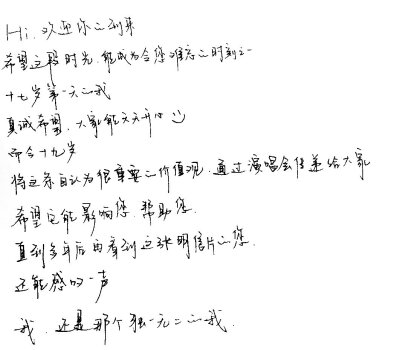 Hi, 欢迎你的到来
希望这段时光, 能成为令您难忘的时刻之一
十七岁第一天的我
真诚希望, 大家能天天开心
而今十九岁
将这条自认为很重要的价值观, 通过演唱会传递给大家
希望它能影响您, 帮助您.
直到多年后再看到这张明信片的您,
还能感叹一声
我, 还是那个独一无二的我.